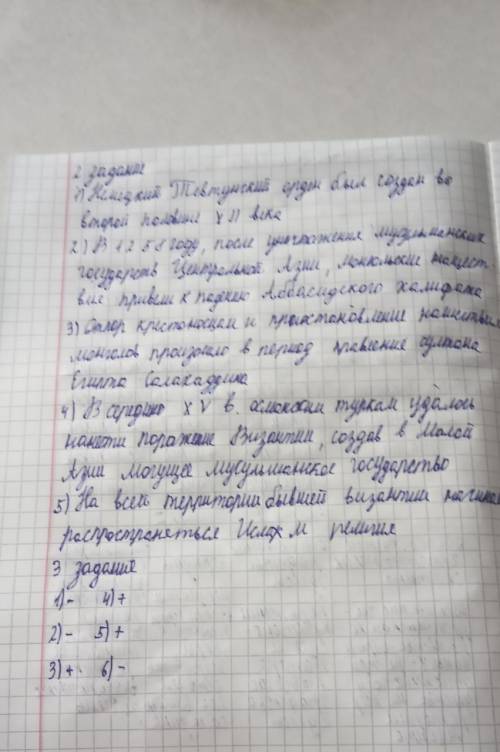 2 задание
1) Немецкий Тевтунский орден был создан во
второй половине XII века
2) В 1258 году, после уничтожения мусульманских
государств Центральной Азии, монгольские нашест
вия привели к падению Аббасидского халифата
3) Отпор крестоносцам и приостановление нашествия
монголов произошло в период правления султана
Египта Салахаддина
4) В середине XV в. османским туркам удалось
нанести поражение Византии, создав в Малой
Азии могущее мусульманское государство
5) На всей территории бывшей византии начинает
распространяться Ислам религия
3 задание
1) - 4) +
2) - 5) +
3) + 6) -